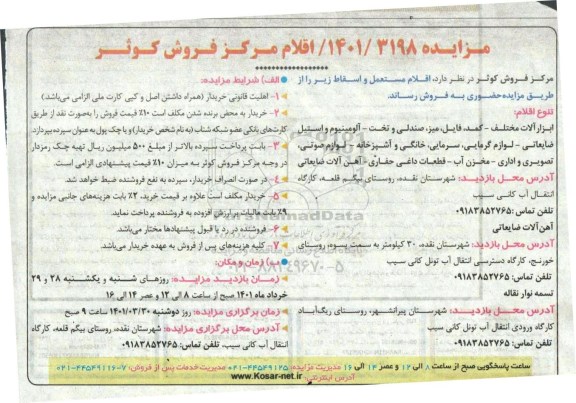 مزایده ۳۱۹۸ /۱۴۰۱/ اقلام مرکز فروش کوثر
مرکز فروش کوثر در نظر دارد، اقلام مستعمل و اسقاط زیر را از
طریق مزایده‌حضوری به فروش رساند.
تنوع اقلام:
ابزارآلات مختلف - کمد، فایل، میز، صندلی و تخت - آلومینیوم و استیل
ضایعاتی - لوازم گرمایی، سرمایی، خانگی و آشپزخانه - لوازم صوتی،
تصویری و اداری - مخزن آب - قطعات داغی حفاری - آهن آلات ضایعاتی
آدرس محل بازدید: شهرستان نقده، روستای بیگم قلعه، کارگاه
انتقال آب کانی سیب
تلفن تماس: ۰۹۱۸۳۸۵۲۷۶۵
آهن آلات ضایعاتی
آدرس محل بازدید: شهرستان نقده، ۳۰ کیلومتر به سمت پسوه، روستای
خورنج، کارگاه دسترسی انتقال آب تونل کانی سیب
تلفن تماس: ۰۹۱۸۳۸۵۲۷۶۵
تسمه نوار نقاله
آدرس محل بازدید: شهرستان پیرانشهر، روستای ریگ‌آباد
کارگاه ورودی انتقال آب تونل کانی سیب
تلفن تماس: ۰۹۱۸۳۸۵۲۷۶۵
الف) شرایط مزایده:
۱- اهلیت قانونی خریدار (همراه داشتن اصل و کپی کارت ملی الزامی می‌باشد.)
۲- خریدار به محض برنده شدن مکلف است ۱۰٪ قیمت فروش را به‌صورت نقد از طریق
کارت‌های بانکی عضو شبکه شتاب (به نام شخص خریدار) و یا چک پول به عنوان سپرده بپردازد.
۳- بابت پرداخت سپرده بالاتر از مبلغ ۵۰۰ میلیون ریال تهیه چک رمزدار
در وجه مرکز فروش کوثر به میزان ۱۰٪ قیمت پیشنهادی الزامی است.
۴- در صورت انصراف خریدار، سپرده به نفع فروشنده ضبط خواهد شد.
۵- خریدار مکلف است علاوه بر قیمت خرید، ۲٪ بابت هزینه‌های جانبی مزایده و
۹٪ بابت مالیات بر ارزش افزوده به فروشنده پرداخت نماید.
۶- فروشنده در رد یا قبول پیشنهادها مختار می‌باشد.
۷- کلیه هزینه‌های پس از فروش به عهده خریدار می‌باشد.
ب) زمان و مکان:
زمان بازدید مزایده: روزهای شنبه و یکشنبه ۲۸ و ۲۹
خرداد ماه ۱۴۰۱ صبح از ساعت ۸ الی ۱۲ و عصر ۱۴ الی ۱۶
زمان برگزاری مزایده: روز دوشنبه ۱۴۰۱/۰۳/۳۰ ساعت ۹ صبح
آدرس محل برگزاری مزایده: شهرستان نقده، روستای بیگم قلعه، کارگاه
انتقال آب کانی سیب، تلفن تماس: ۰۹۱۸۳۸۵۲۷۶۵
ساعت پاسخگویی صبح از ساعت ۸ الی ۱۲ و عصر ۱۴ الی ۱۶ مدیریت مزایده: ۴۴۵۴۹۱۲۵-۰۲۱ مدیریت خدمات پس از فروش: ۷-۴۴۵۴۹۱۱۶-۰۲۱
آدرس اینترنتی: www.Kosar-net.ir
ParsNamadData
۰۲۱-۸۸۳۴۹۶۷۰-۵